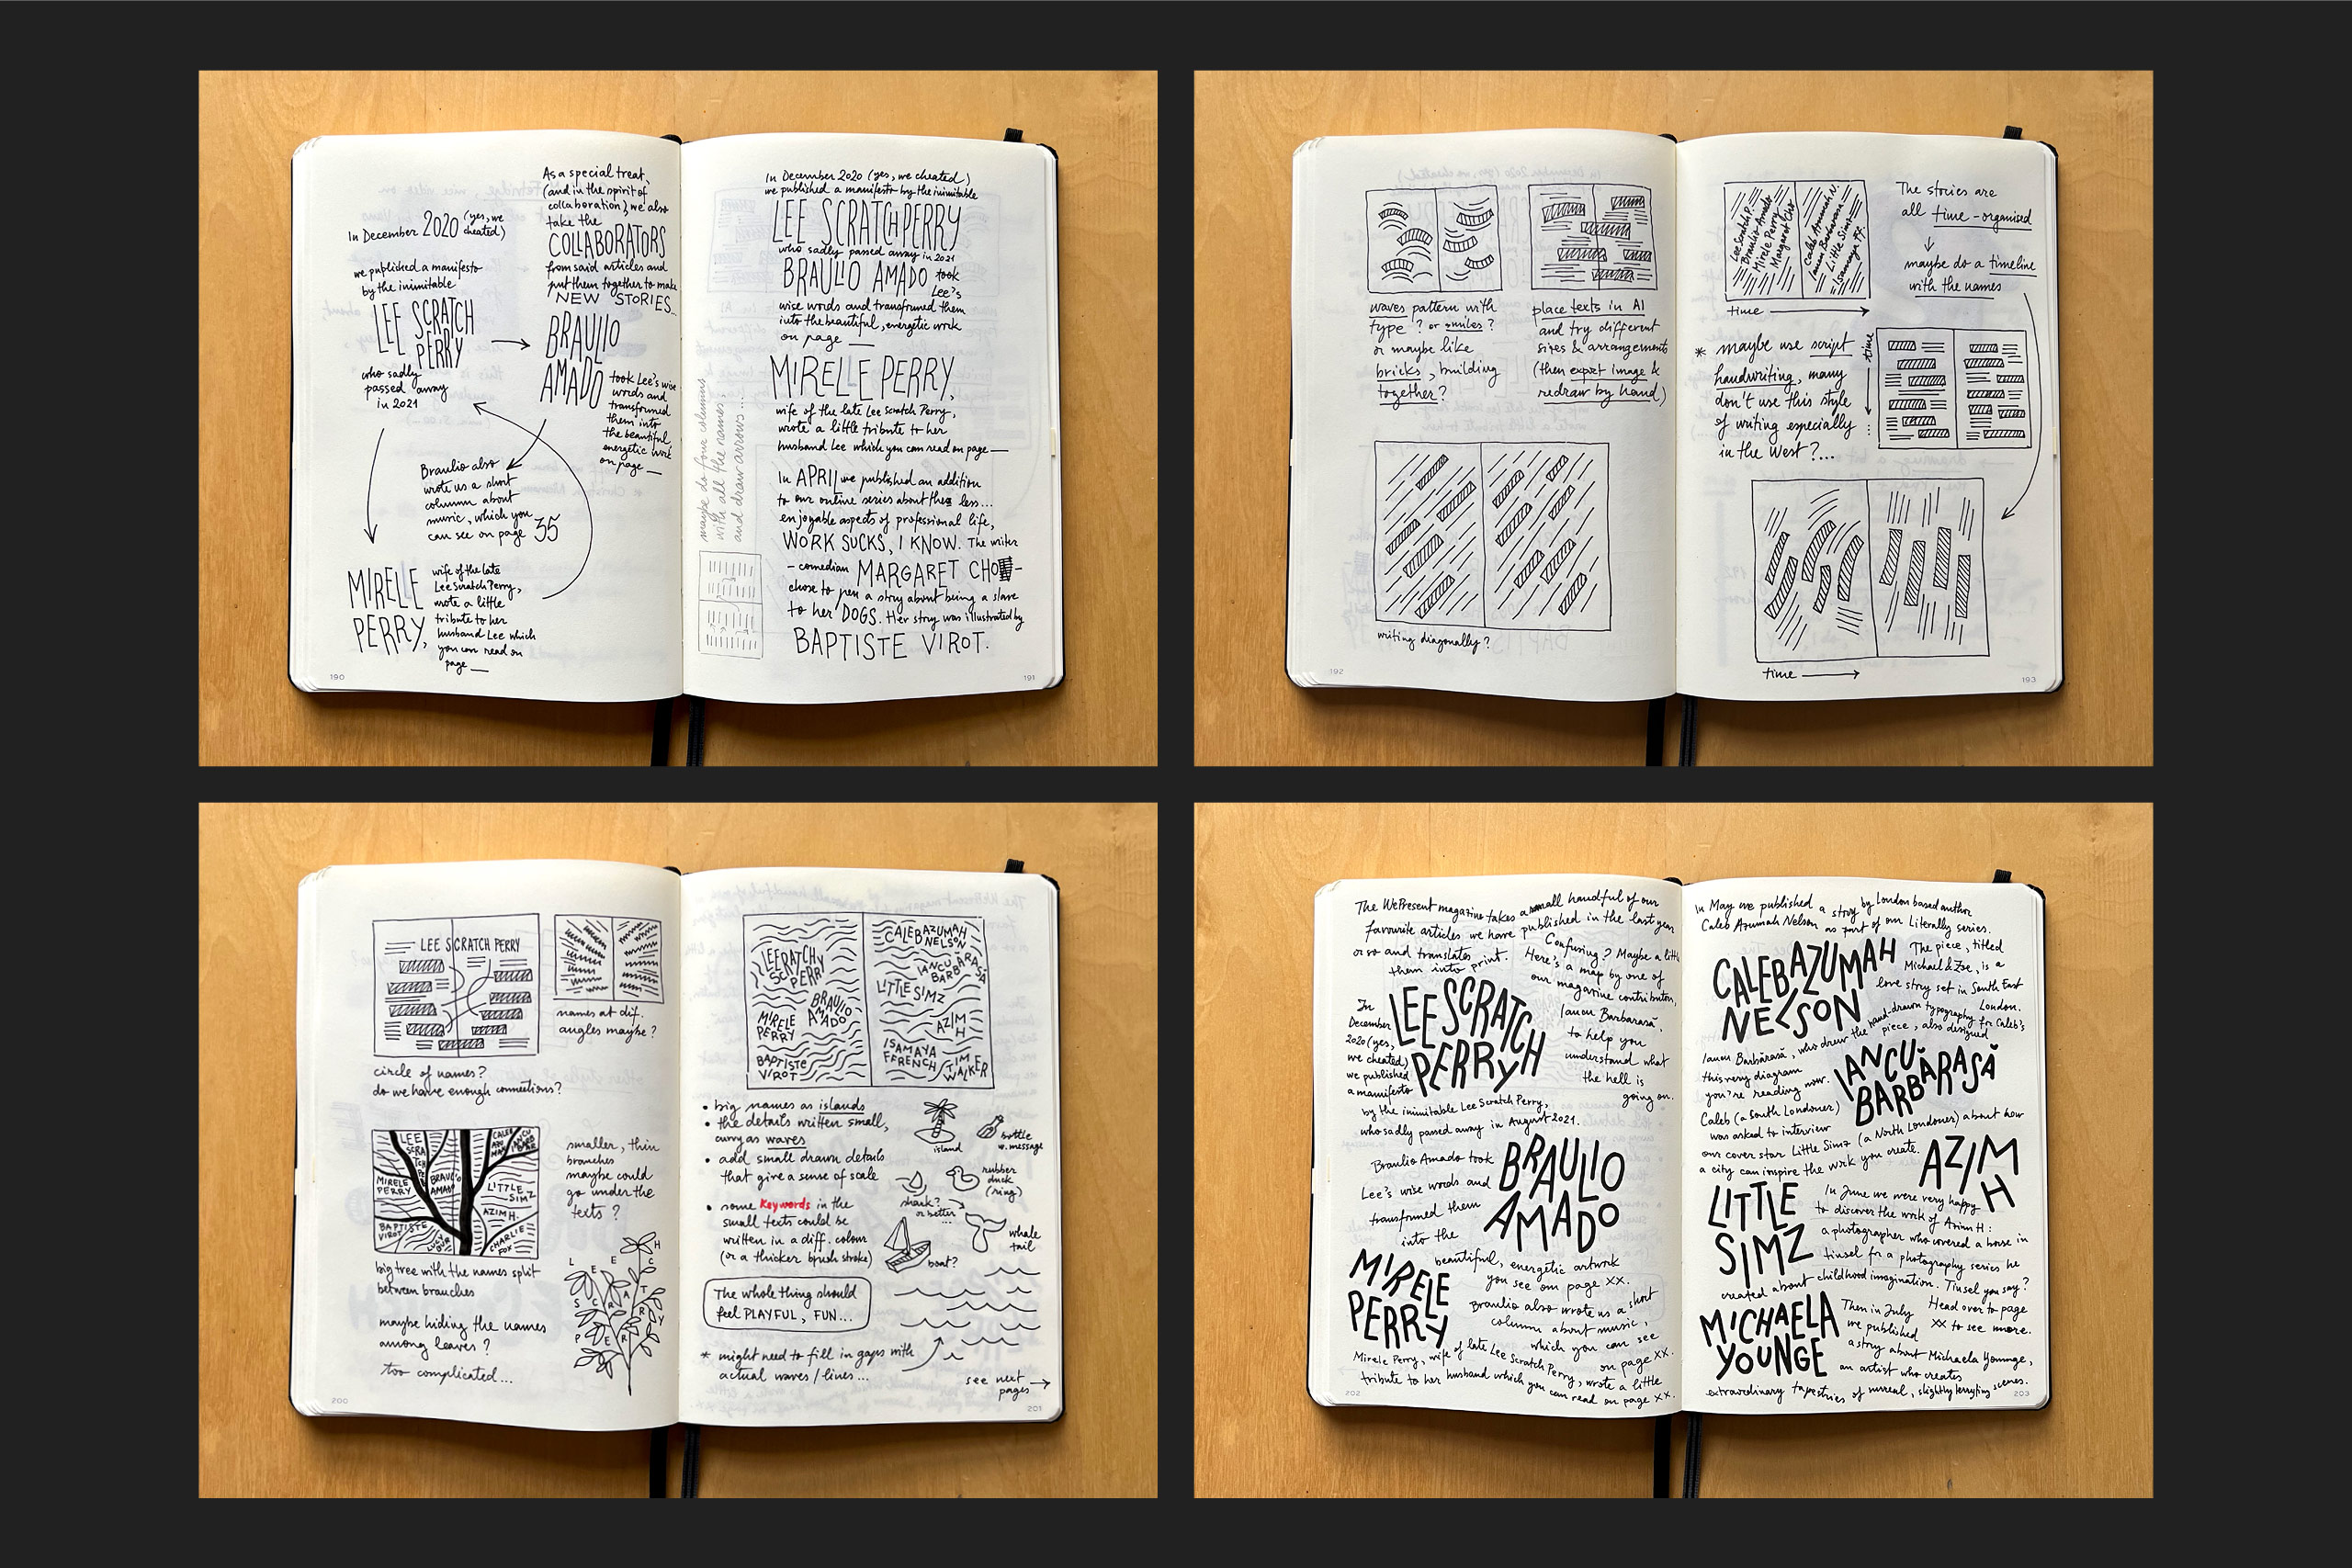 In December 2020 (yes, we
cheated)
we published a manifesto
by the inimitable
LEE SCRATCH
PERRY
who sadly
passed away
in 2021
As a special treat,
(and in the spirit of
collaboration), we also
take the
COLLABORATORS
from said articles and
put them together to make
NEW STORIES...
BRAULIO
AMADO
took Lee's wise
words and
transformed
them into
the beautiful
energetic work
on page __
Braulio also
wrote us a short
column about
music, which you
can see on page 35
MIRELE
PERRY,
wife of the late
Lee Scratch Perry,
wrote a little
tribute to her
husband Lee which
you can read on
page __
190
In December 2020 (yes, we cheated)
we published a manifesto by the inimitable
LEE SCRATCH PERRY
who sadly passed away in 2021
BRAULIO AMADO took
Lee's
wise words and transformed them
into the beautiful, energetic work
on page __
MIRELLE PERRY,
wife of the late Lee Scratch Perry,
wrote a little tribute to her
husband Lee which you can read on page __
maybe do four columns
with all the names,
and draw arrows...
In APRIL we published an addition
to our online series about the less...
enjoyable aspects of professional life,
WORK SUCKS, I KNOW. The writer
- comedian MARGARET CHO -
chose to pen a story about being a slave
to her DOGS. Her story was illustrated by
BAPTISTE VIROT.
191
waves pattern with
type? or smiles?
or maybe like
bricks, building
together?
place texts in AI
and try different
sizes & arrangements
(then export image &
redraw by hand)
writing diagonally?
192
Lee Scratch P.
Braulio Amado
Mirele Perry
Margaret Cho
Caleb Azumah N.
Iancu Barbarasa
Little Simz
Isamaya Ff.
time
The stories are
all time-organised
maybe do a timeline
with the names
* maybe use script
handwriting, many
don't use this style
of writing especially
in the West?...
time
time
193
LEE SCRATCH PERRY
names at dif.
angles maybe?
circle of names?
do we have enough connections?
LEE
SCRA
TCH
PE
MIRELE
PERRY
BRAULIO
AMADO
CALEB
AZU
MAH
IANCU
BARB
LITTLE
SIMZ
AZIM H.
BAPTISTE
VIROT
CHARLIE
FOX
smaller, then
branches
maybe could
go under the
texts?
big tree with the names split
between branches
maybe hiding the names
among leaves?
too complicated...
LEE SCRATCH PERRY
200
LEE SCRATCHY
SC PERRY
BRAULIO
AMADO
MIRELE
PERRY
BAPTISTE
VIROT
CALEB AZUMAH
NELSON
IANCU
BARBĂRASĂ
LITTLE SIMZ
AZIM
H
ISAMAYA
FFRENCH
TIM
WALKER
• big names as islands
• the details written small,
curvy as waves
• add small drawn details
that give a sense of scale
• some Keywords in the
small texts could be
written in a diff. colour
(or a thicker brush stroke)
The whole thing should
feel PLAYFUL, FUN...
* might need to fill in gaps with
actual waves/lines...
island
bottle
w. message
rubber
duck
(ring)
shark?
or better
...
whale
tail
boat?
see next
pages
201
The WePresent magazine takes a small handful of our
favourite articles we have published in the last year
or so and translates
them into print.
Confusing? Maybe a little
Here's a map by one of
our magazine contributors,
Iancu Barbărasă,
to help you
understand what
the hell is
going on.
In
December
2020 (yes,
we cheated)
we published
a manifesto
LEE SCRATCH
PERRY
by the inimitable Lee Scratch Perry,
who sadly passed away in August 2021.
Braulio Amado took
Lee's wise words and
transformed them
into the
BRAULIO
AMADO
beautiful, energetic artwork
you see on page XX.
Braulio also wrote us a short
column about music,
which you can see
on page XX.
MIRELE
PERRY
Mirele Perry, wife of late Lee Scratch Perry, wrote a little
tribute to her husband which you can read on page XX.
202
In May we published a story by London based author
Caleb Azumah Nelson as part of our Literally series.
CALEB AZUMAH
NELSON
The piece, titled
Michael & Zoe, is a
love story set in South East
London.
Iancu Barbărasă, who drew the hand-drawn typography for Caleb's
piece, also designed
this very diagram
you're reading now.
IANCU
BARBĂRASĂ
Caleb (a South Londoner)
was asked to interview
our cover star Little Simz (a North Londoner) about how
a city can inspire the work you create.
AZIM
H
LITTLE
SIMZ
In June we were very happy
to discover the work of Azim H:
a photographer who covered a horse in
tinsel for a photography series he
created about childhood imagination. Tinsel you say?
Head over to page
XX to see more.
MICHAELA
YOUNGE
Then in July
we published
a story about Michaela Younge,
an artist who creates
extraordinary tapestries of surreal, slightly terrifying scenes.
203